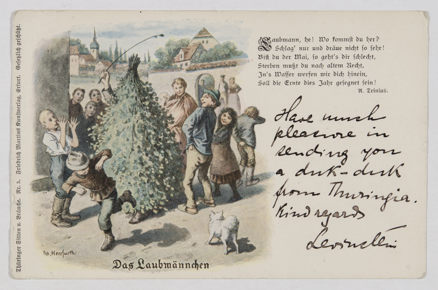 Laubmann, he! Wo kommst du her?
Schlag' nur und dräue nicht so sehr!
Bist du der Mai, so geht's dir schlecht,
Sterben mußt du nach altem Recht,
In's Wasser werfen wir dich hinein,
Soll die Ernte dies Jahr gesegnet sein!
A. Trinius.
Have much
pleasure in
sending you
a duk-duk
from Thuringia.
Kind regards
Levinstein
Das Laubmännchen
Thüringer Sitten u. Bräuche. Nr. 4. Friedrich Martins Kunstverlag, Erfurt. Gesetzlich geschützt.